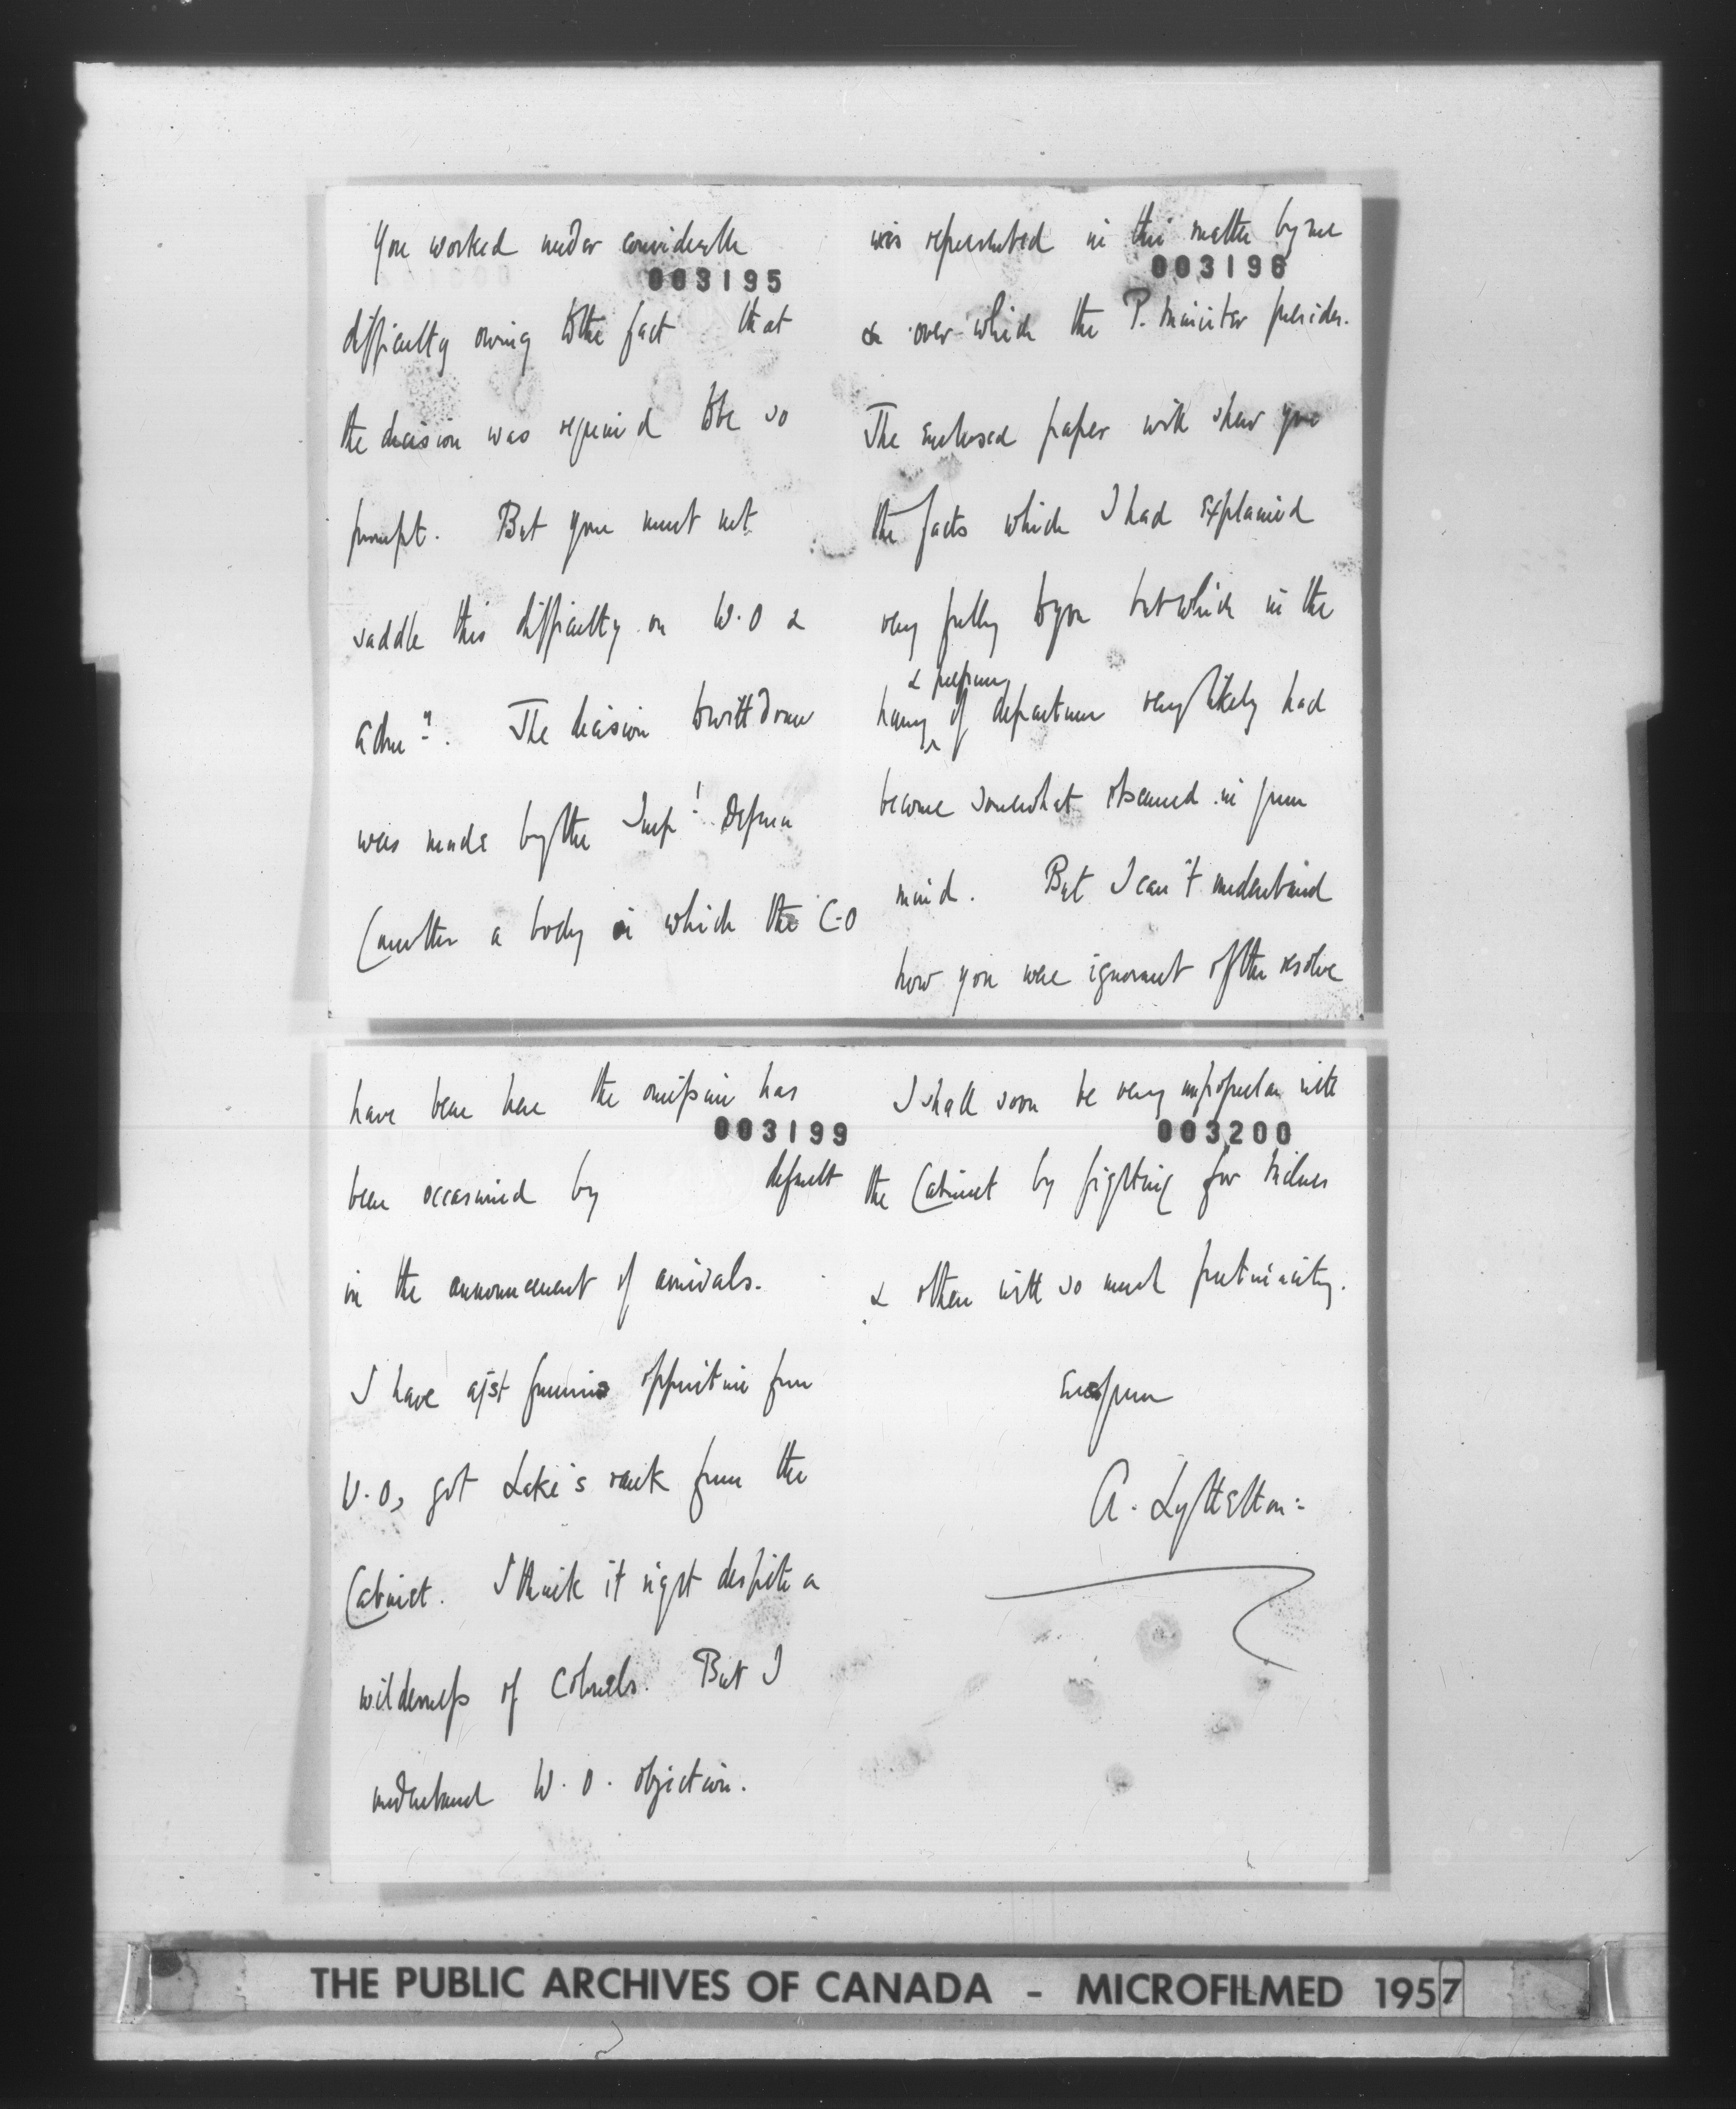 You worked under considerable
003195
difficulty owing to the fact that
the decision was required to be so
prompt. But you must not
saddle this difficulty on W.O &
The decision to withdraw
was made by the Imp! Defence
Committee a body in which the C-O
was represented in this matter by me
003196
& over which the P. Minister presides.
The enclosed paper will shew you
the facts which I had explained
very fully to you but which in the
& preparing
hurry of departure very likely had
become somewhat obscured in your
mind. But I can't understand
how you were ignorant of the resolve
have been here the omission has
003199
been occasioned by default
in the announcement of arrivals.
I have agst furious opposition from
W.O, got Lake's rank from the
Cabinet. I think it right despite a
wilderness of Colonels. But I
understand W.O. objection.
I shall soon be very unpopular with
003200
the Cabinet by fighting for
& others with so much pertinacity.
Ever yours
A. Lyttelton:
THE PUBLIC ARCHIVES OF CANADA - MICROFILMED 1957